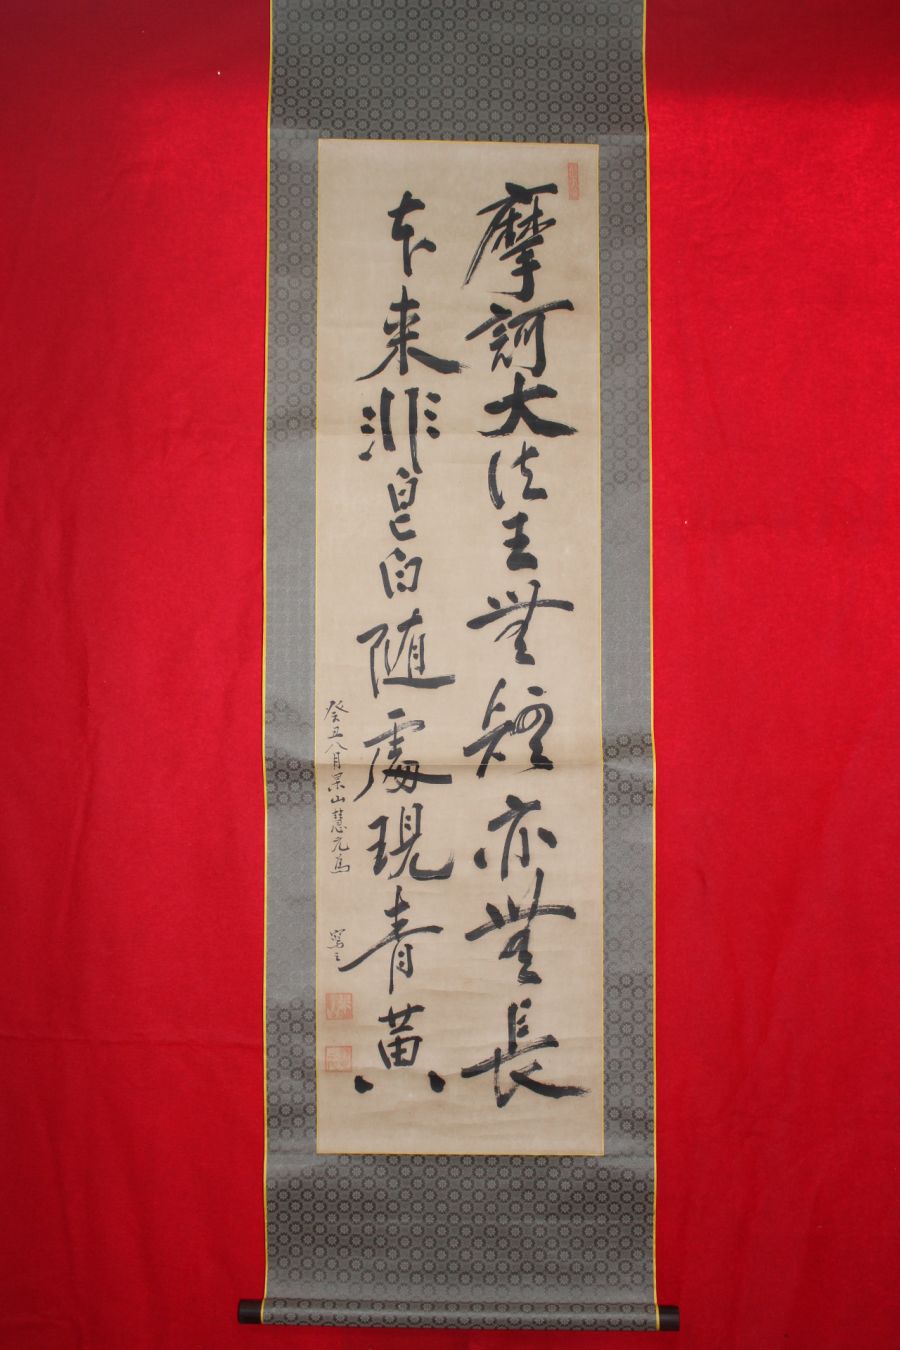 摩訶大法王無短亦無長
本来非皂白随處現青黄
癸丑八月杲山慧元為
寫之